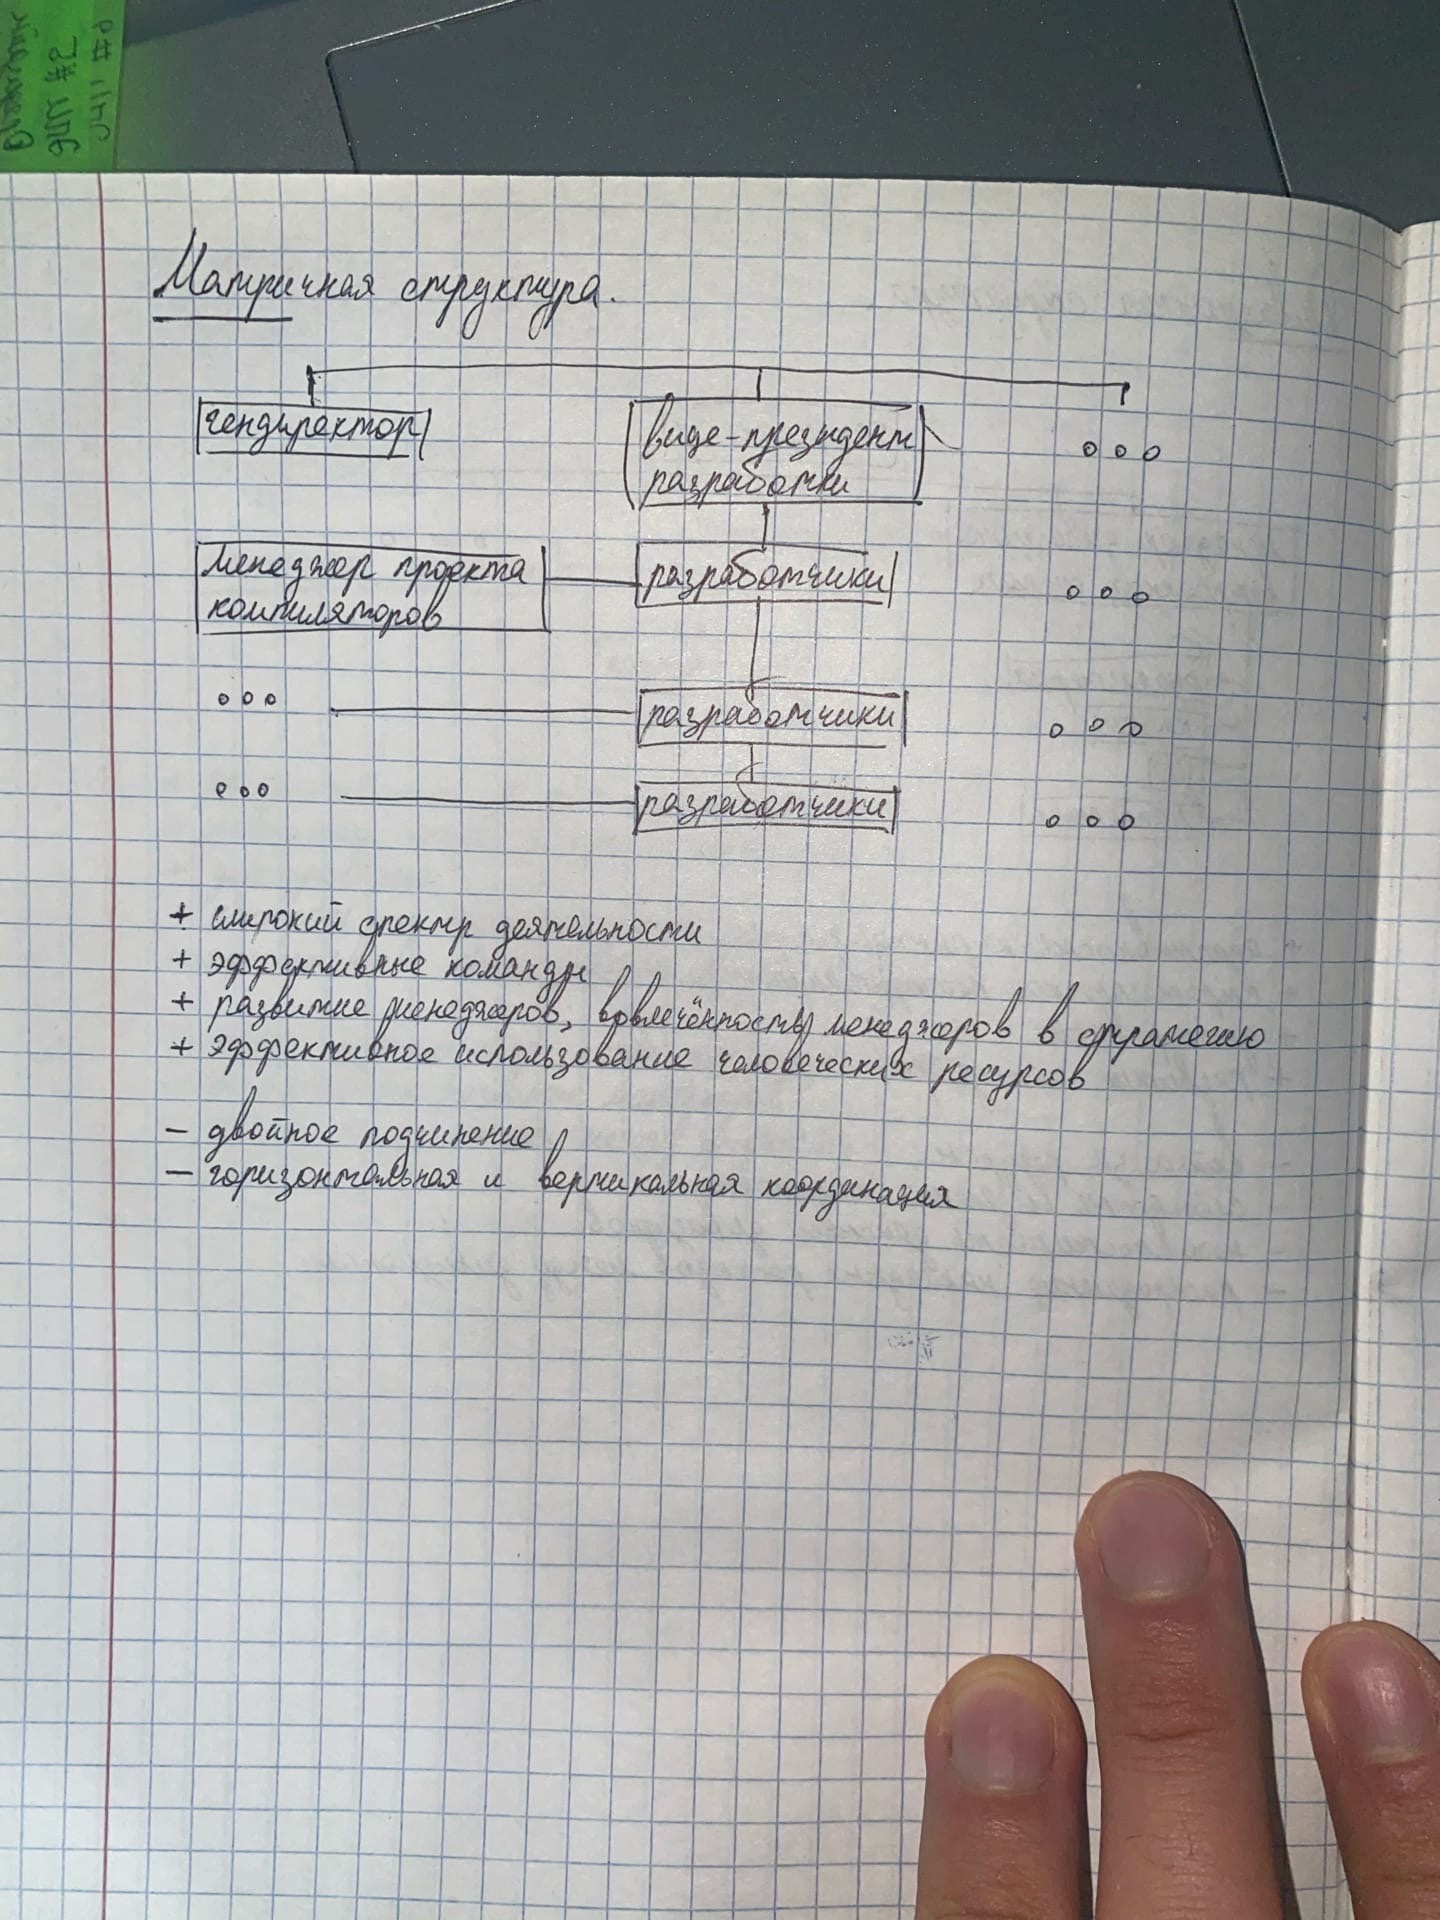 Матричная структура.
гендиректор
вице-президент
разработки
менеджер проекта
компиляторов
разработчики
разработчики
разработчики
+ широкий спектр деятельности
+ эффективные команды
+ развитие менеджеров, вовлечённость менеджеров в стратегию
+ эффективное использование человеческих ресурсов
- двойное подчинение
- горизонтальная и вертикальная координация